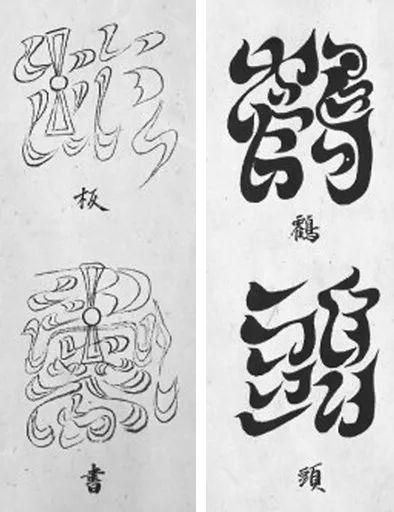 鶴
頭
板
書